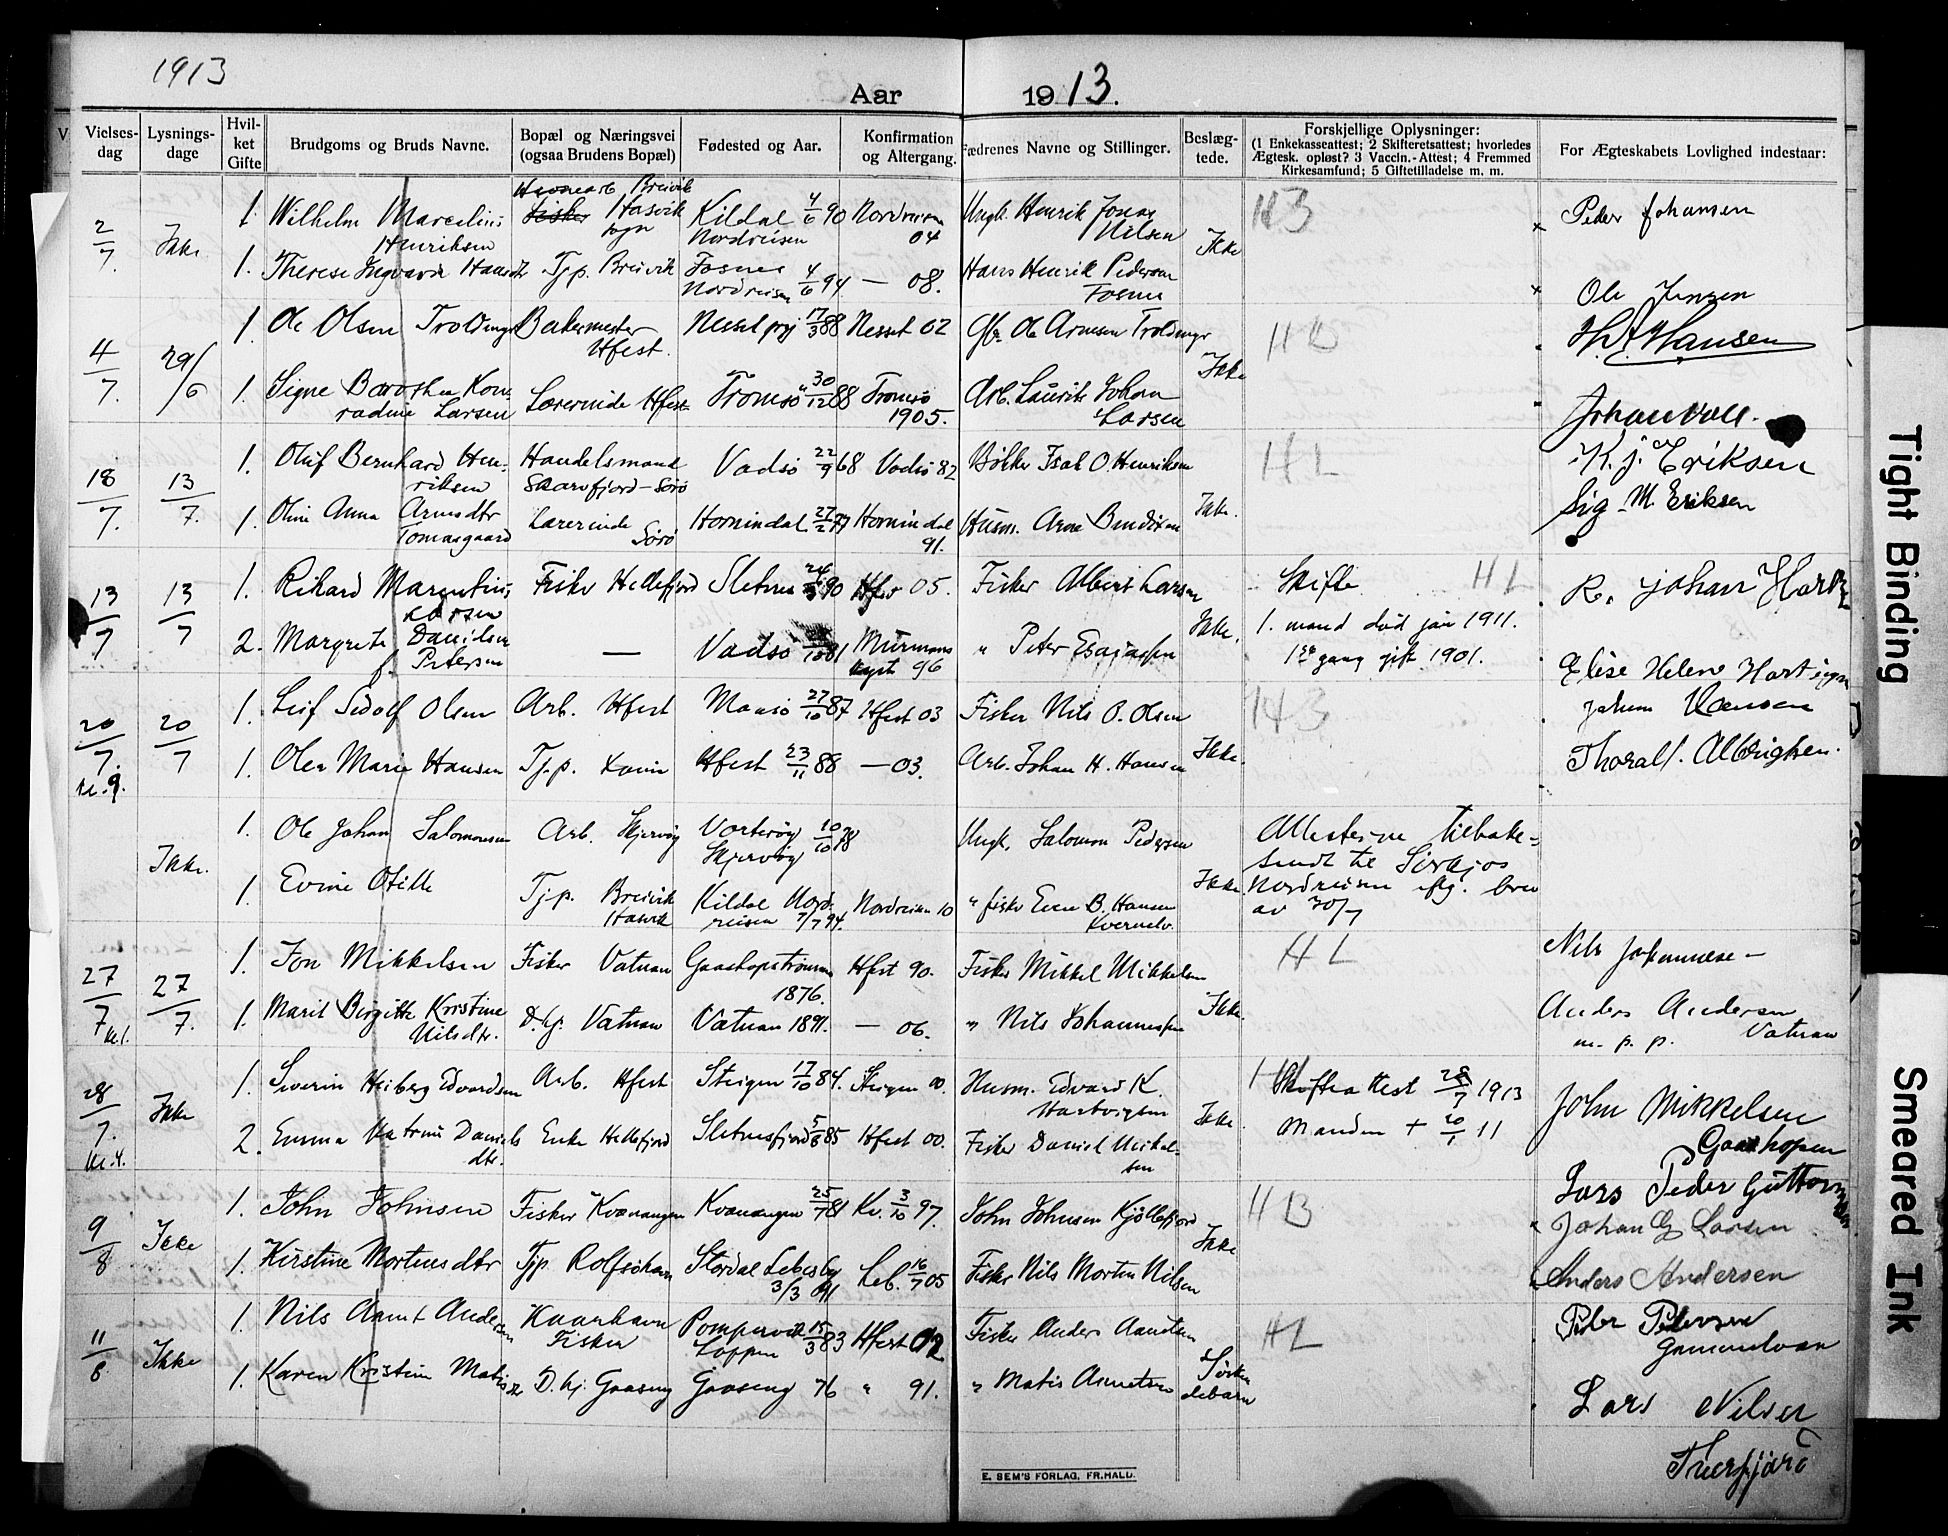 1913
Aar 1913.
Vielses-dag
Lysnings-dage
Hvil-ket Gifte
Brudgoms og Bruds Navne.
Bopæl og Næringsvei (ogsaa Brudens Bopæl)
Fødested og Aar.
Konfirmation og Altergang.
Fædrenes Navne og Stillinger.
Beslæg-tede.
Forskjellige Oplysninger:
(1 Enkekasseattest; 2 Skifteretsattest; hvorledes
Ægtesk. opløst? 3 Vaccin.-Attest; 4 Fremmed
Kirkesamfund; 5 Giftetilladelse m. m.
For Ægteskabets Lovlighed indestaar:
2/7. Ikke
1. Wilhelm Marcelius Henriksen Breivik Fisker Hasvik sogn Kildal Nordreisen 4/6 90 Nordreisen 04 Ungk. Henrik Josias Nilsen Ikke Peder Johansen
1. Therese Ingvarda Hansdtr Tjp. Breivik Fosnes Nordreisen 4/6 94 — 08. Hans Henrik Pedersen Fosnes Ole Jensen
4/7. 29/6
1. Ole Olsen Troldmyr Bakermester Hfest. Nesset prj 17/3 88 Nesset 02 Ole Arnesen Troldmyr Ikke H. A. Hansen
1. Signe Dorothea Konradine Larsen Lærerinde Hfest Tromsø 30/12 88 Tromsø 1905. Arb. Laurits Johan Larsen Johan Voll.
18/7. 13/7.
1. Oluf Bernhard Henriksen Handelsmand Skarvfjord - Sørø Vadsø 22/9 68 Vadsø 82 Bøkker Isak O. Henriksen Ikke. H L K. J. Eriksen
1. Oline Anna Arnesdtr Tomasgaard Lærerinde Sørø Hornindal 27/2 77 Hornindal 91. Husm. Arne Bendixen Sig. M. Eriksen
13/7 13/7
1. Rikard Margentius Larsen Fisker Hellefjord Sletnes 90 Hfest 05. Fisker Albert Larsen Ikke. Skifte. H L R. Johan Hartz
1. mand død jan 1911.
1ste gang gift 1901.
2. Margrete Danielsen f. Petersen — Vadsø 81 Murmanskyst 96 " Peter Esaiassen Elise Helene Hartvigsen
20/7. kl. 9. 20/7
1. Leif Sedolf Olsen Arb. Hfest Maasø 27/10 87 Hfest 03 Fisker Nils O. Olsen Ikke. Johan Hansen
1. Olea Marie Hansen Tj.p. Hfest 23/11 88 — 03. Arb. Johan H. Hansen Thoralf. Albrigtsen.
Ikke.
1. Ole Johan Salomonsen Arb. Skjervøy Vorterøy Skjervøy 10/10 78 Ungk. Salomon Pedersen Ikke.
Attesterne tilbake-
sendt til Sørkjos
Nordreisen eftg. brev
av 30/7
1. Evine Otilie Tjp. Breivik Hasvik Kildal Nordreisen 7/7 94. Nordreisen 10 " fisker Even B. Hansen Kvernelv.
27/7 kl. 27/7.
1. Jon Mikkelsen Fisker Vatnan Gaashopstrømmen 1876. Hfest 90. Fisker Mikkel Mikkelsen Ikke. H L Nils Johannese —
1. Marit Birgitte Kristine Nilsdtr. D. hj. Vatnan Vatnan 1891. — 06. " Nils Johannessen Anders Andersen Vatnan
m. p. p.
28/7. kl. 4. Ikke
1. Severin Heiberg Edvardsen Arb. Hfest Steigen 17/10 84. Steigen 00. Husm. Edvard K. Hartvigsen Ikke. Skifteattest 28/7 1913 John Mikkelsen Gaashopen
2. Emma Katrine Danielsdtr. Enke Hellefjord Sletnesfjord 5/8 85 Hfest 00. Fisker Daniel Mikalsen Manden + 20/1 11 Lars Peder Guttormsen
9/8 Ikke
1. John Johnsen Fisker Kvænangen Kvænangen 25/7 81 Kv. 3/10 97. John Johnsen Kjøllefjord Ikke Johan G Larsen
1. Kirstine Mortensdtr Tjp. Rolfsøhavn Stordal Lebesby 3/3 91 Leb. 16/7 05 Fisker Nils Morten Nilsen Anders Andersen
11/8 Ikke
1. Nils Aamt Andersen Kaarhavn Fisker Loppen 15/3 83 Hfest 02 Fisker Anders Aamtsen Søskendebarn H L Peder Pedersen
1. Karen Kristine Matisdtr D. hj. Gaasnes Gaasnes 76 " 91. " Matis Asmetsen Lars Nilsen
E. SEM'S FORLAG, FR.HALD.
Tight Binding
Smeared Ink